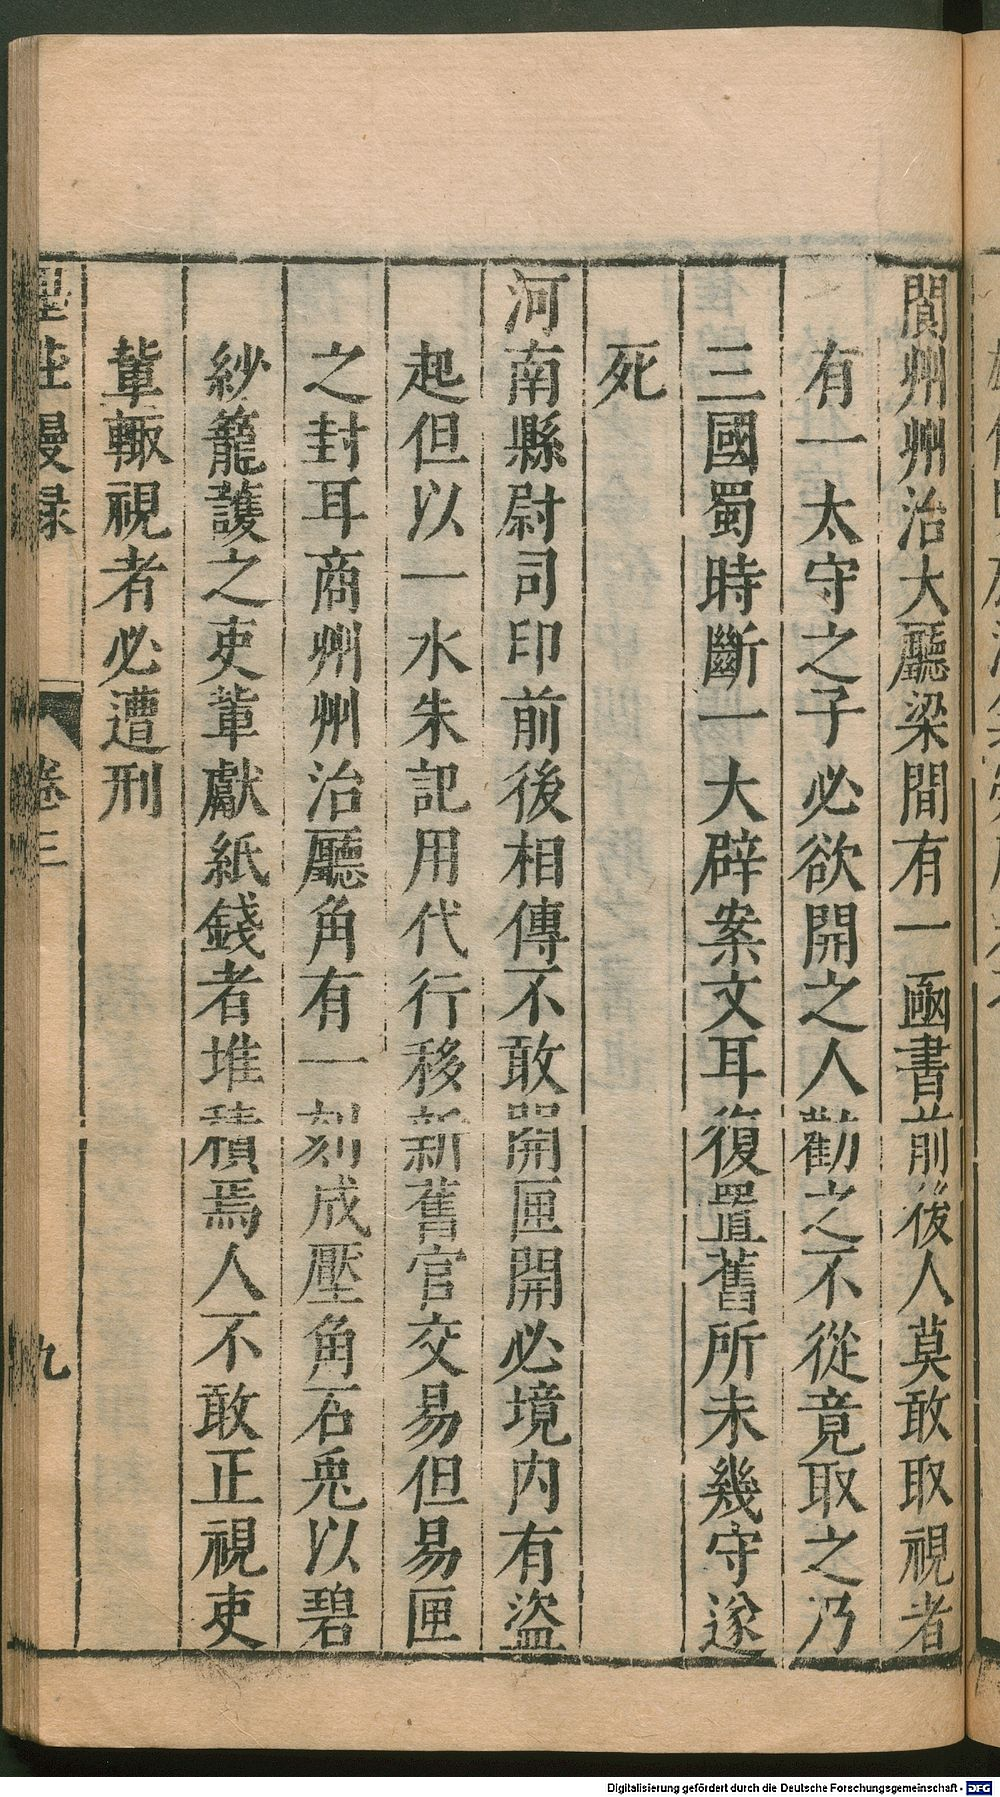 閬州州治大廳梁間有一凾書前後人莫敢取視者
有一太守之子必欲開之人勸之不從竟取之乃
三國蜀時斷一大辟案文耳復置舊所未幾守遂
死
河南縣尉司印前後相傳不敢開匣開必境内有盜
起但以一水朱記用代行移新舊官交易但易匣
之封耳商州州治廳角有一刻成壓角石兎以碧
紗籠護之吏軰獻紙錢者堆積焉人不敢正視吏
軰輙視者必遭刑
墨莊漫録 卷三 九
Digitalisierung gefördert durch die Deutsche Forschungsgemeinschaft - DFG